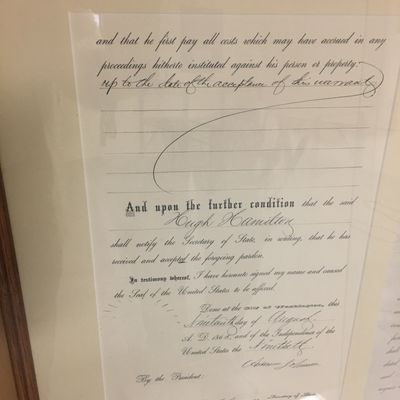 and that he first pay all costs which may have accrued in any
proceedings hitherto instituted against his person or property
up to the date of the acceptance of this warrant
And upon the further condition that the said
Hugh Hamilton
shall notify the Secretary of State, in writing, that he has
received and accepted the foregoing pardon.
In testimony whereof, I have hereunto signed my name and caused
the Seal of the United States to be affixed.
Done at the this
Nineteenth day of August
A. D. 186 and of the Independence of the
United States the Ninetieth
By the President:
Secretary of State